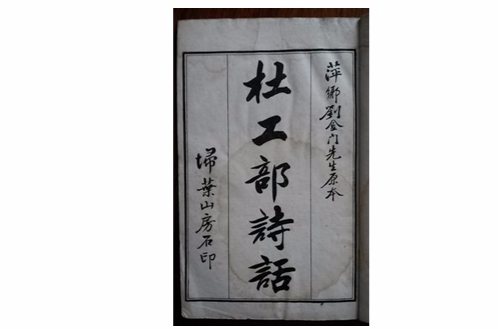 萍鄉劉金门先生原本
杜工部詩話
埽葉山房石印